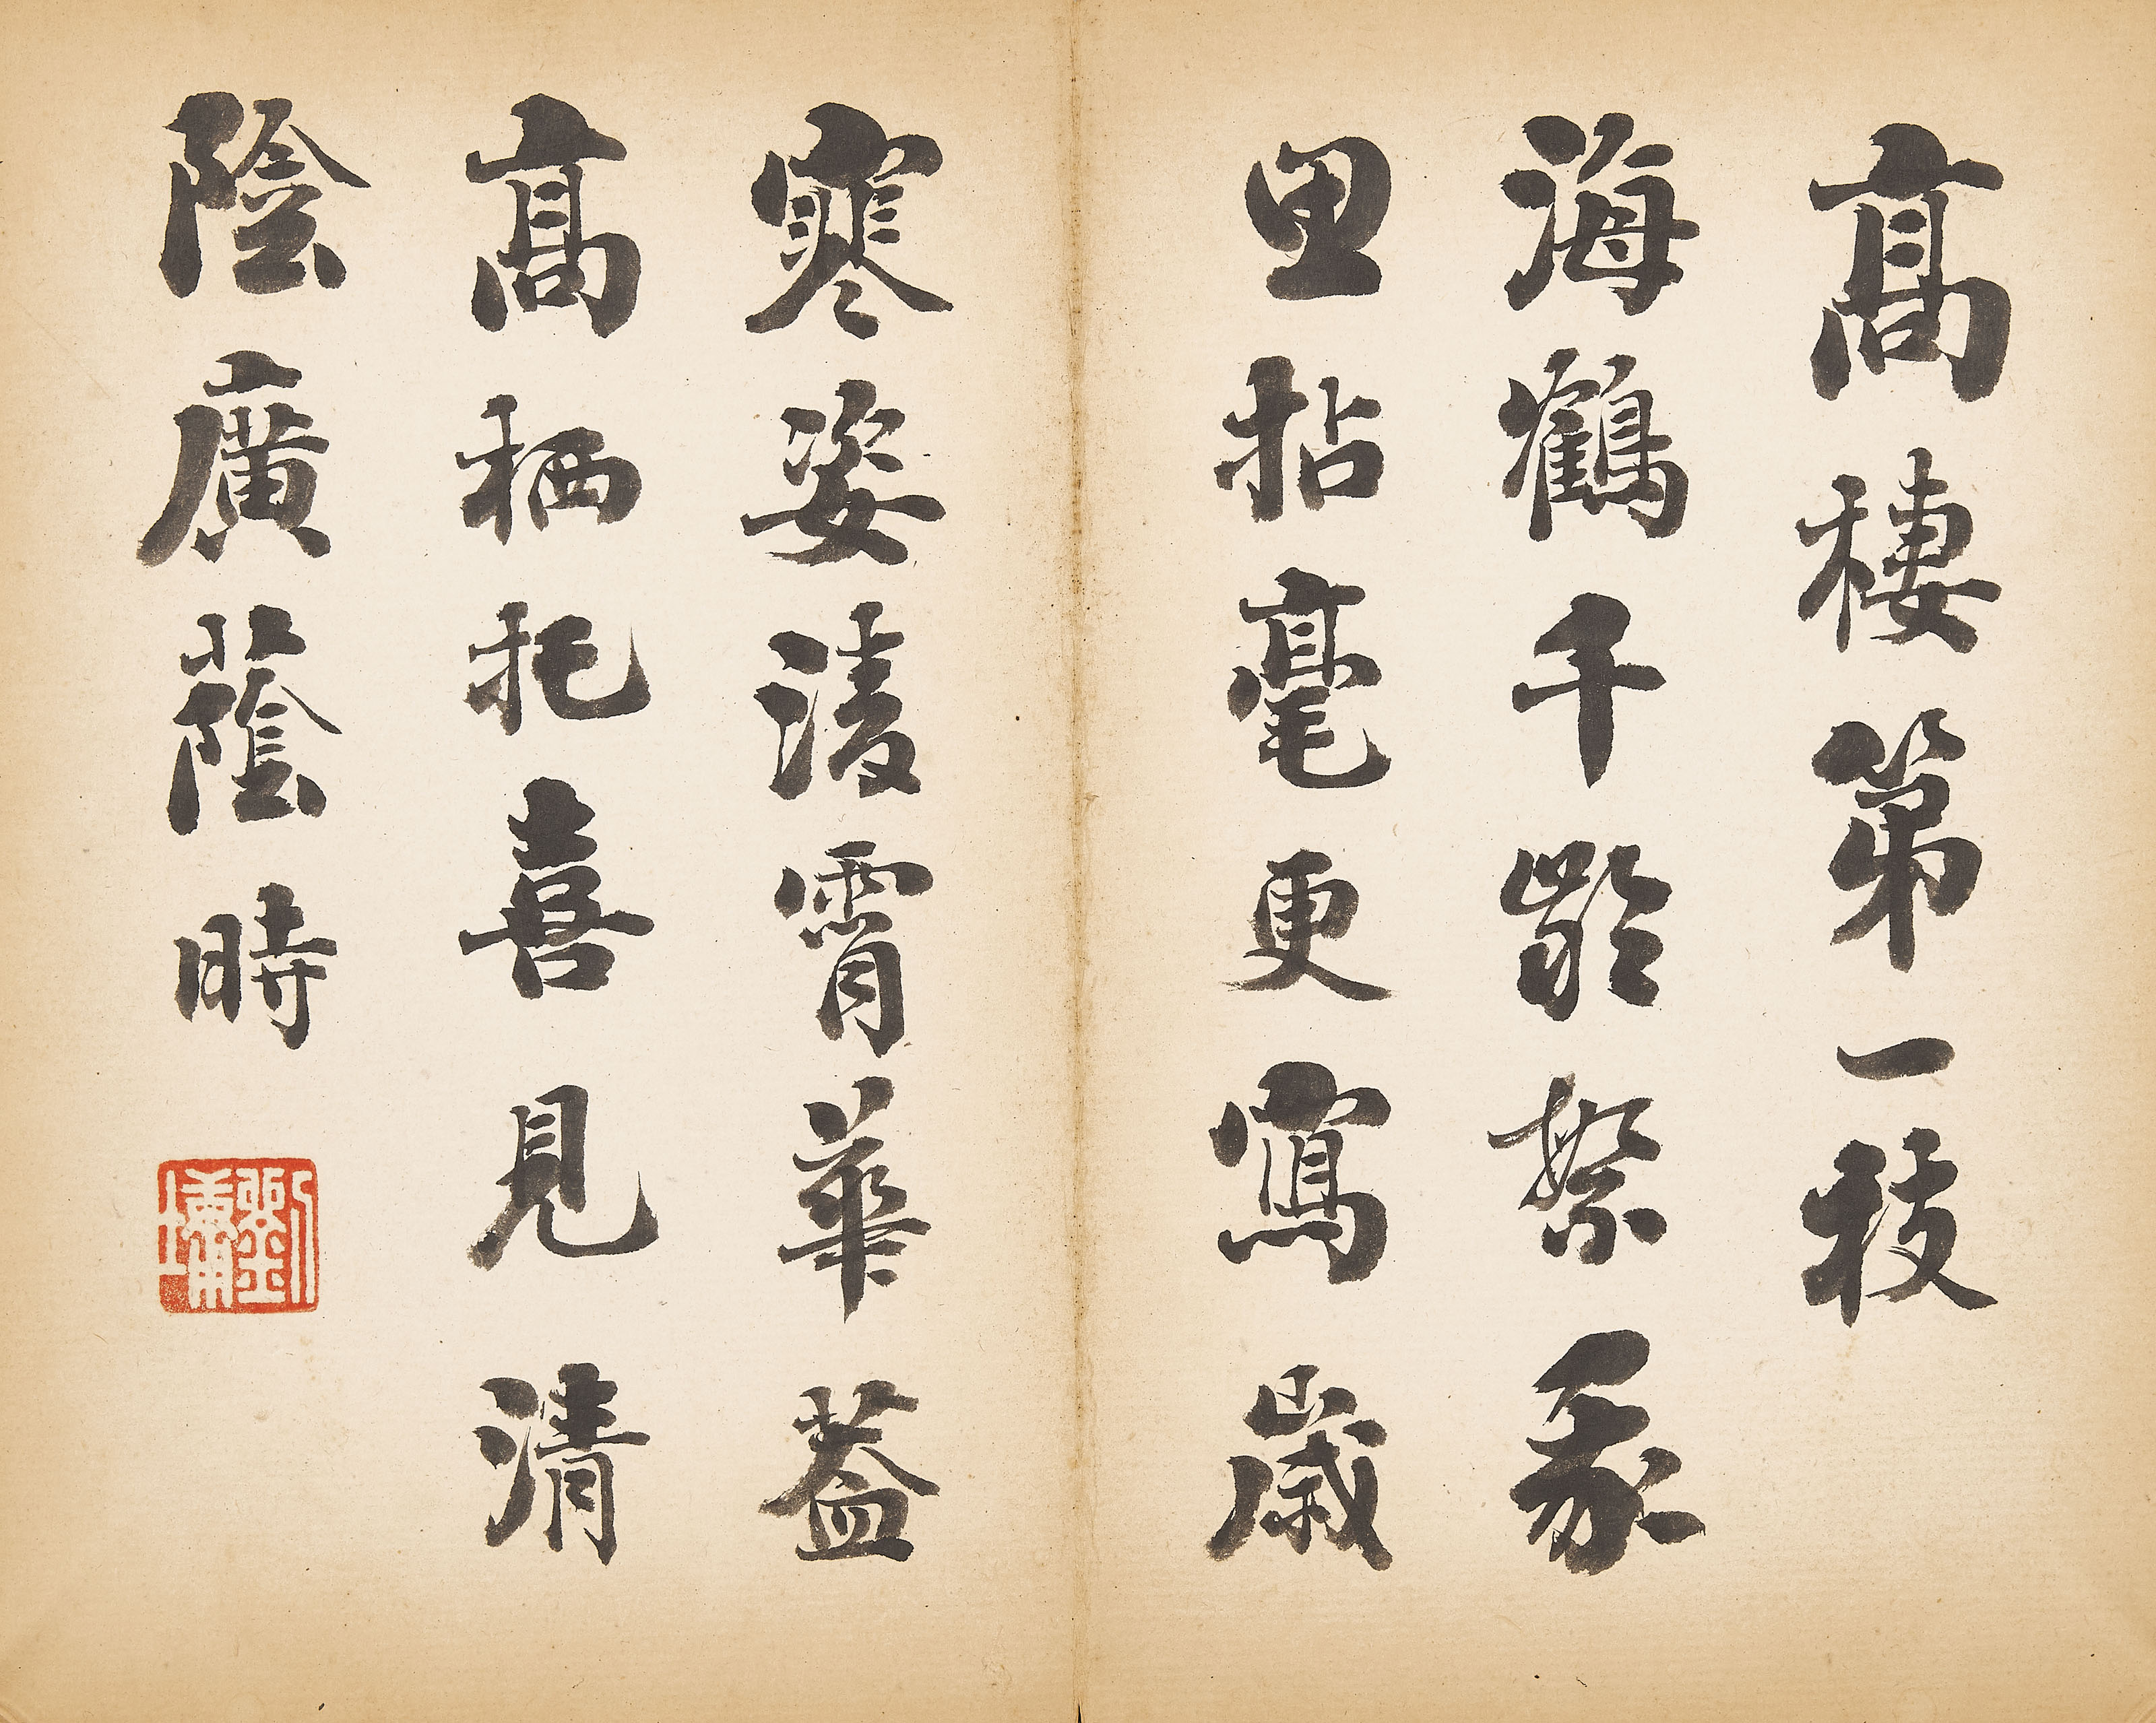 高棲第一枝
海鶴千齡繁
里拈毫更寫歲
寒姿淩霄華蓋
高栖托喜見清
陰廣蔭時
劉墉